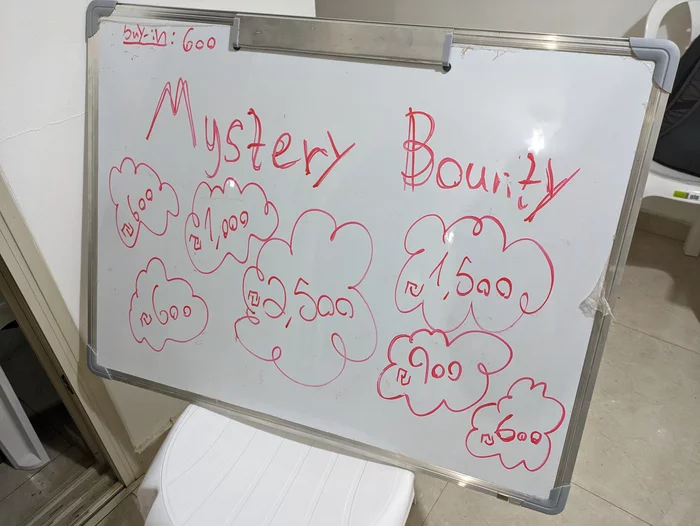 buy-in: 600
Mystery Bounty
₪600
₪1,000
₪2,500
₪1,500
₪600
₪900
₪600